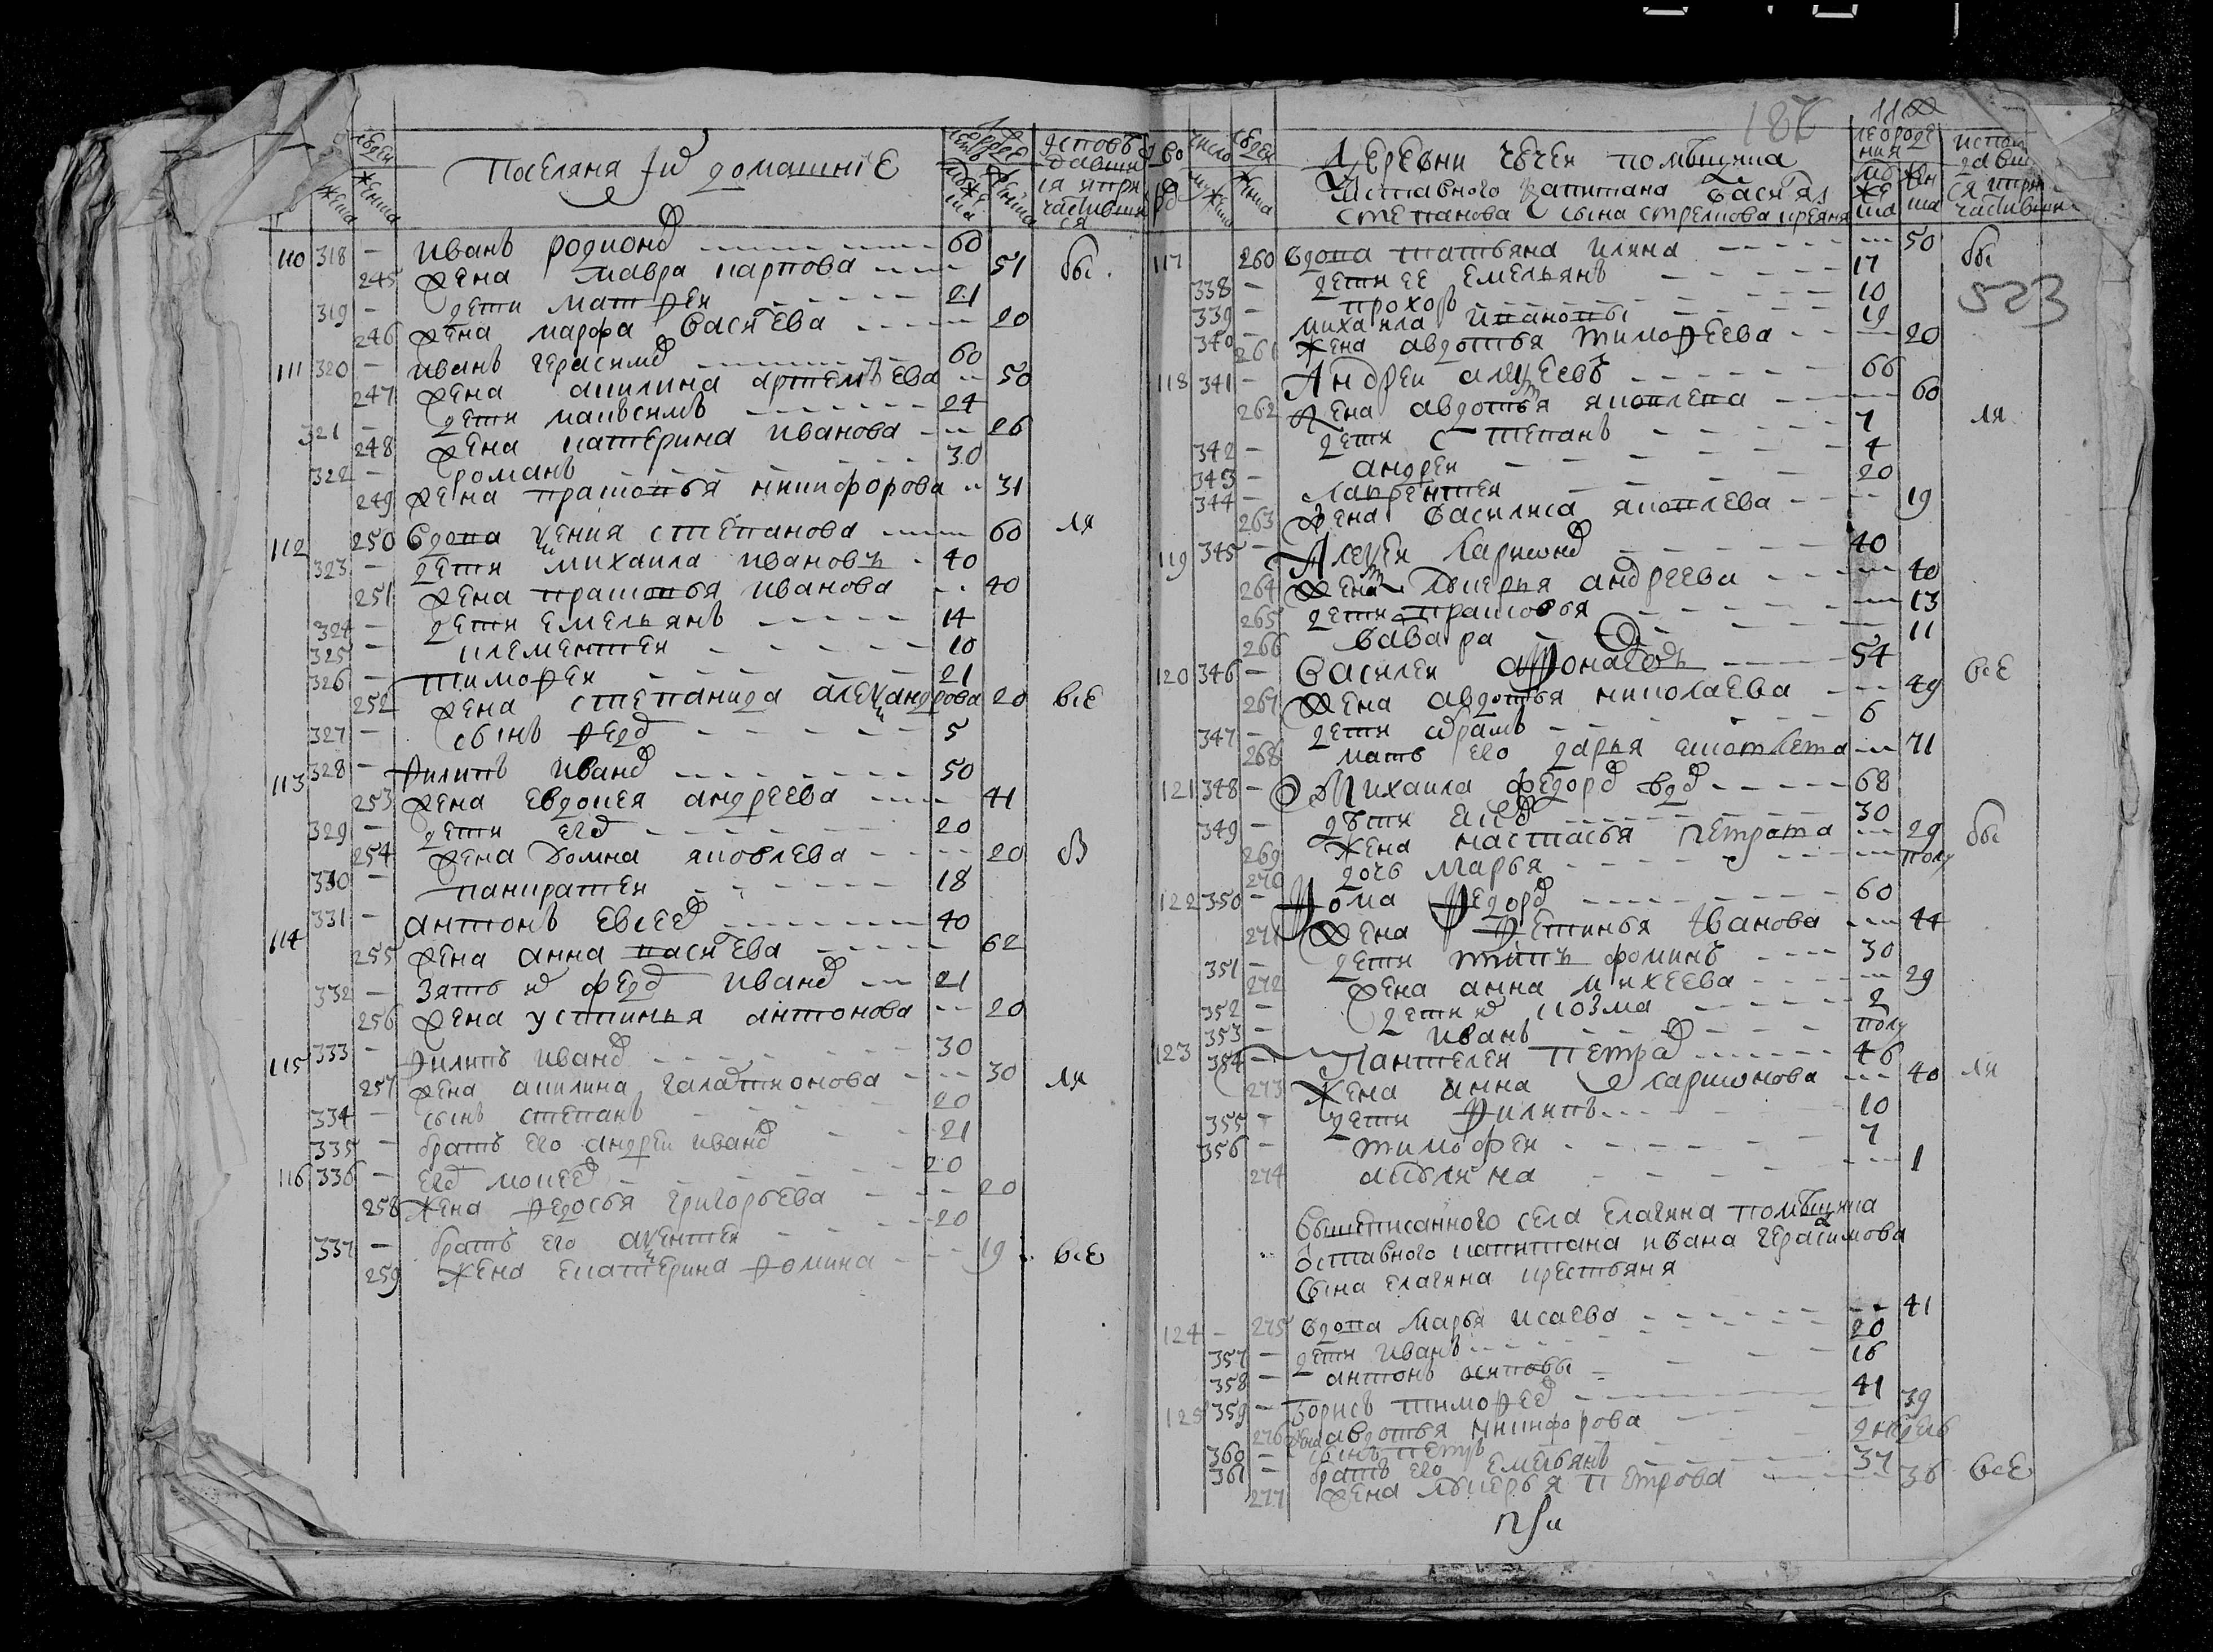 Поселяня их домашние
110 318 – иванъ родионо 60 бы
245 жена мавра карпова 51
319 – дети матфеи 21
246 жена марфа васиева 20
111 320 – иванъ герасимо 60
247 жена акилина артемъева 50
321 – дети маѯимъ 24
248 жена катерина иванова 26
322 – романъ 30
249 жена прасковья никифорова 31
112 250 вдова ѯения степанова 60 ли
323 – дети михаила ивановъ 40
251 жена прасковья иванова 40
324 – дети емельянъ 14
325 – клементеи 10
326 – тимофеи 21
252 жена степанида алеѯандрова 20 все
327 – сынъ федо 5
113 328 – филипъ ивано 50
253 жена евдокея андреева 41
329 – дети его 20
254 жена домна яковлева 20 в
330 – панкратеи 18
114 331 – антонъ евсее 40
255 жена анна васиева 62
332 – зять их федо ивано 21
256 жена устинья антонова 20
115 333 – филипъ ивано 30
257 жена акилина галатионова 30 ли
334 – сынъ степанъ 20
335 – братъ его андреи ивано 21
116 336 – мокее 20
258 жена федосья григорьева 20
337 – братъ его авѯентеи 20
259 жена екатерина фомина 19 все
186
523
деревни чечеи помещика
отставного капитана васия
степанова сына стрелкова креяня
117 260 вдова татьяна илина 50 бы
338 – дети ее емельянъ 17
339 – прохоръ 10
340 – михаила ивановы 19
261 жена авдотья тимофеева 20
118 341 – Андреи алѯеевъ 66
262 жена авдотья яковлева 60 ли
342 – дети степанъ 7
343 – андреи 4
344 – лаврентеи 20
263 жена василиса яковлева 19
119 345 – Алеѯеи ларионо 40
264 жена лукерья андреева 40
265 дети прасковья 13
266 вавара 11
120 346 – василеи афонасовъ 54 все
267 жена авдотья николаева 49
347 – дети 6
268 мать его дарья 71
121 348 – Михаила федоро вдо 68
349 – дети 30
269 жена настасья петрова 29 бы
270 дочь марья полу
122 350 – Фома федоро 60
271 жена фетинья иванова 44
351 – дети фоминъ 30
272 жена анна михеева 29
352 – дети их козма 2
353 – иванъ полу
123 354 – Пантелеи петро 46
273 жена анна лариконова 40 ли
355 – дети филипъ 10
356 – тимофеи 7
274 акулина 1
вышеписанного села елагина помещика
отставного капитана ивана герасимова
сына елагина крестьяня
124 – 275 вдова марья исаева 41
357 – дети иванъ 20
358 – антонъ осиповы 16
125 359 – борисъ тимофее 41
276 жена авдотья никифорова 39
360 – сынъ петръ 2 недель
361 – братъ его емельянъ 37
277 жена лукерья петрова 36 все